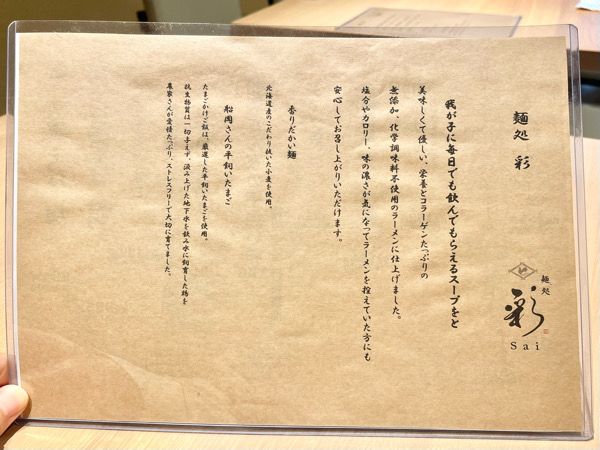 麺処
彩
Sai
麺処 彩
我が子に毎日でも飲んでもらえるスープをと
美味しくて優しい、栄養とコラーゲンたっぷりの
無添加、化学調味料不使用のラーメンに仕上げました。
塩分やカロリー、味の濃さが気になってラーメンを控えていた方にも
安心してお召し上がりいただけます。
香りだかい麺
北海道産のこだわり抜いた小麦を使用。
松岡さんの平飼いたまご
たまごかけご飯は、厳選した平飼いたまごを使用。
抗生物質は一切与えず、汲み上げた地下水を飲み水に飼育した鶏を
農家さんが愛情たっぷり、ストレスフリーで大切に育てました。